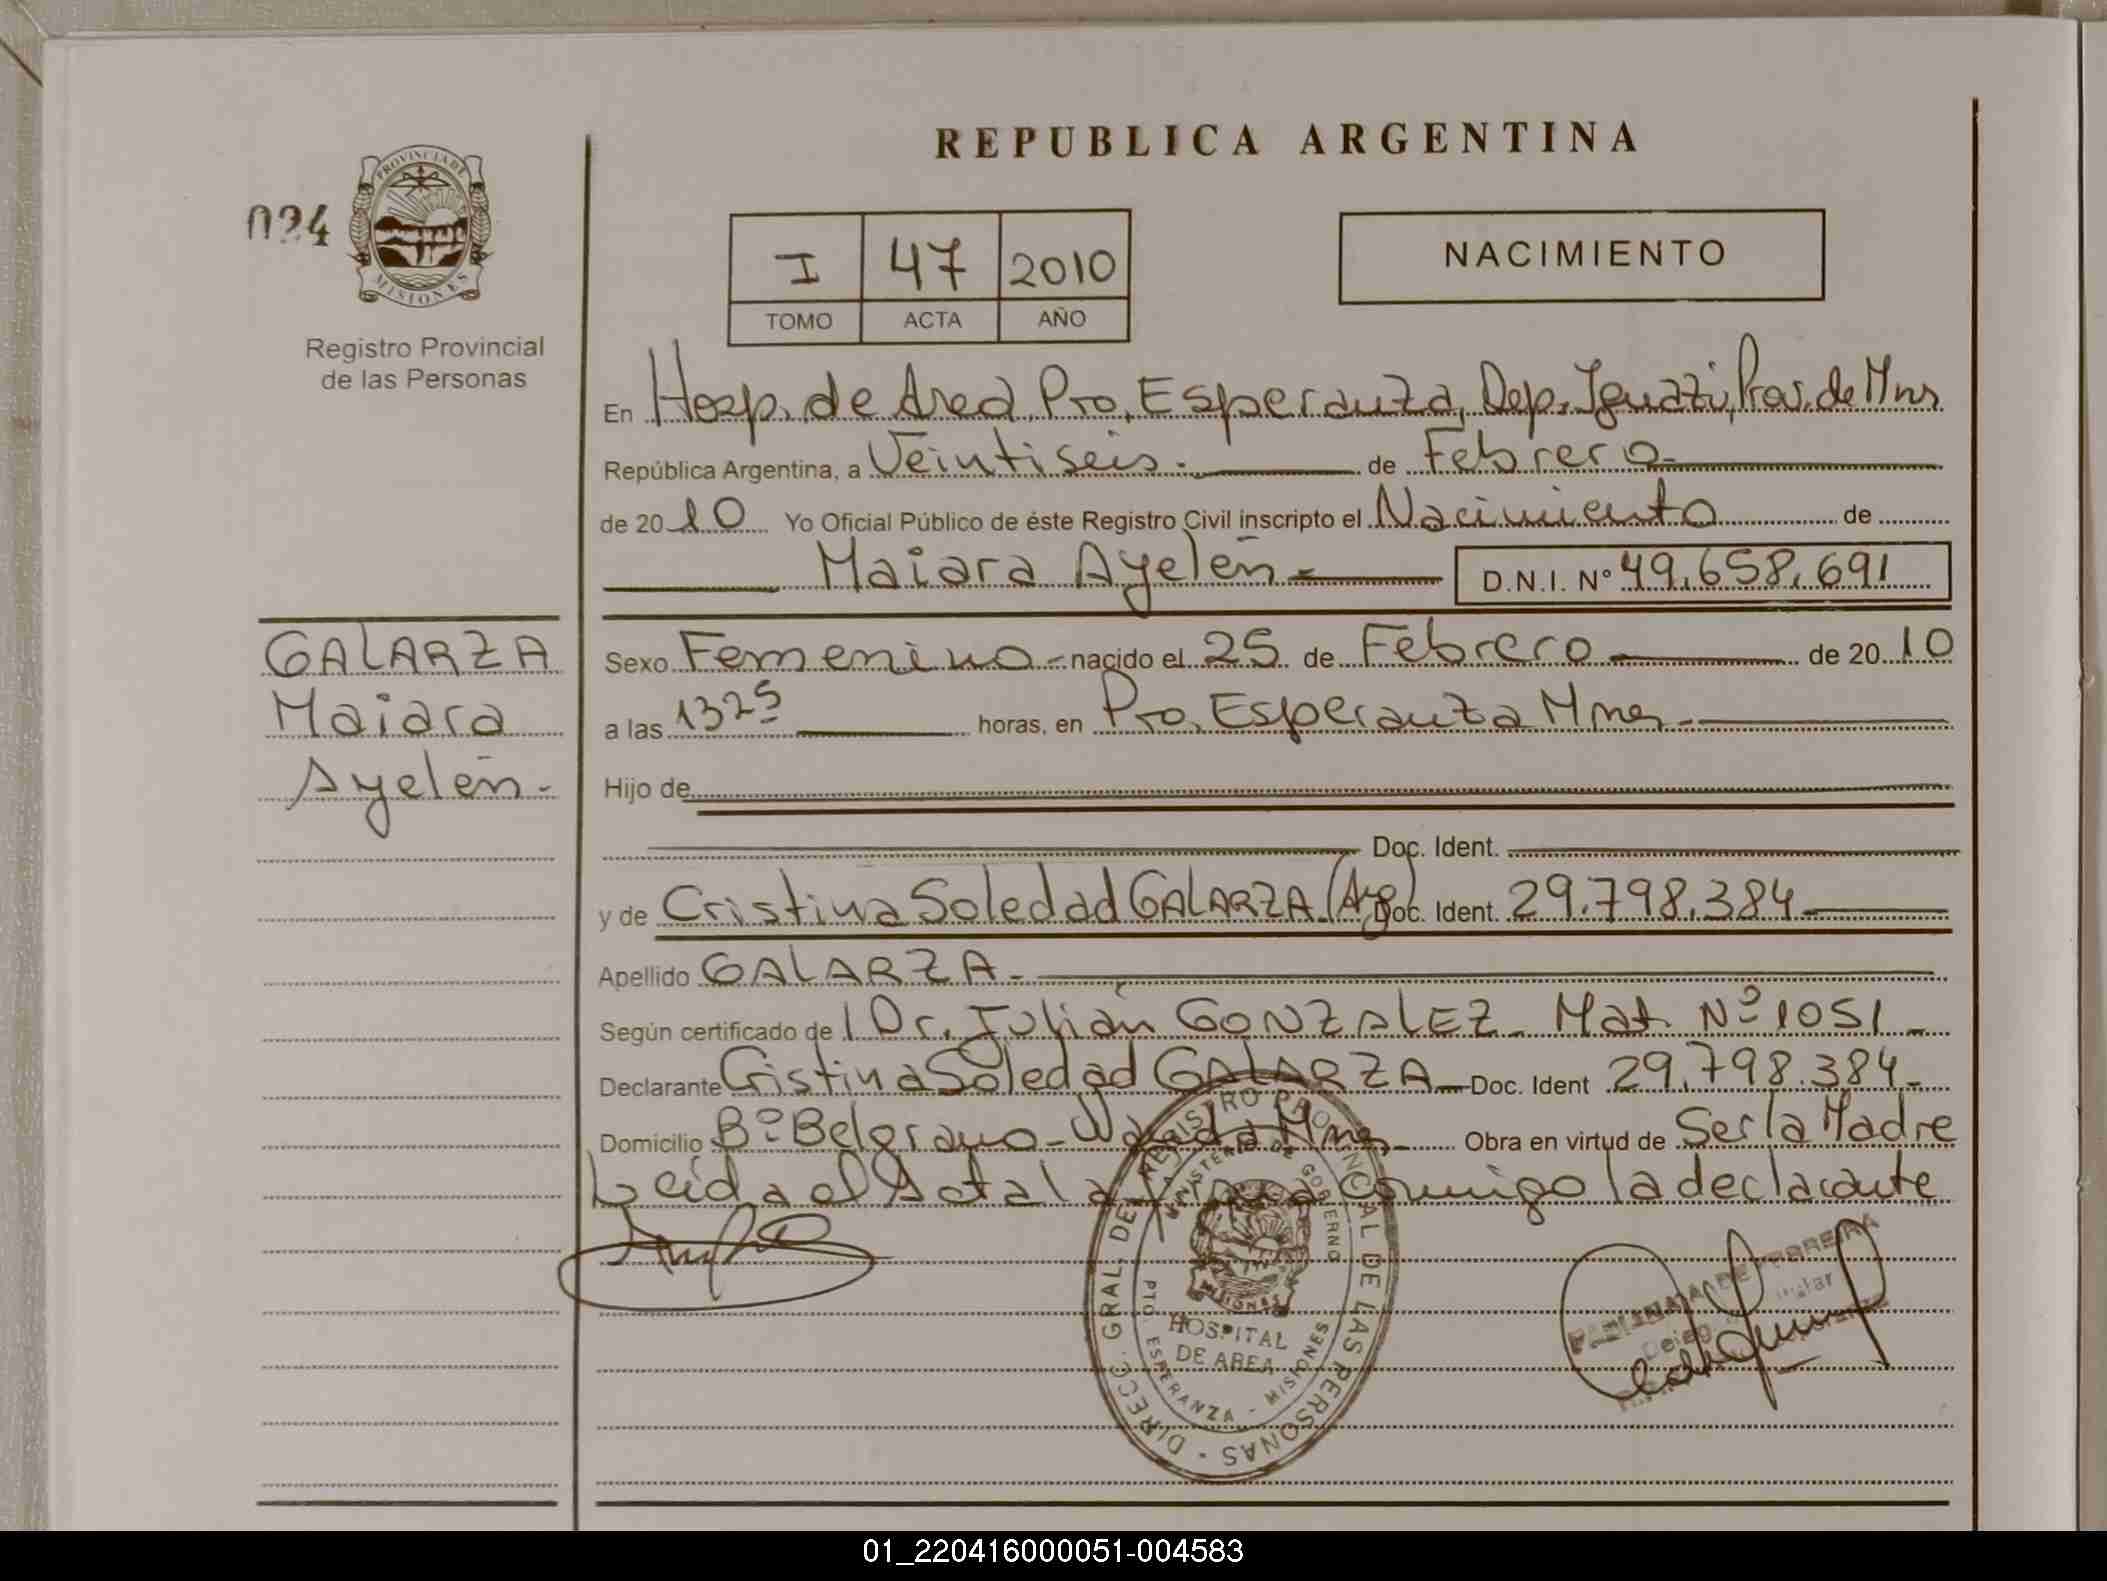 REPUBLICA ARGENTINA
024
PROVINCIA DE
MISIONES
Registro Provincial
de las Personas
I 47 2010
TOMO ACTA AÑO
NACIMIENTO
En Hosp. de Area Pto. Esperanza, Dep. Iguazú, Prov. de Mnes
República Argentina, a Veintiseis.- de Febrero-
de 2010 Yo Oficial Público de éste Registro Civil inscripto el Nacimiento de
Maiara Ayelén - D.N.I. Nº 49.658.691
GALARZA
Maiara
Ayelén.-
Sexo Femenino.- nacido el 25 de Febrero de 2010
a las 1325 horas, en Pto. Esperanza Mnes.-
Hijo de
Doc. Ident.
y de Cristina Soledad GALARZA (Arg) Doc. Ident. 29.798.384
Apellido GALARZA.-
Según certificado de l Dr. Julián GONZALEZ- Mat. Nº 1051-
Declarante Cristina Soledad GALARZA- Doc. Ident 29.798.384-
Domicilio Bº Belgrano- Wanda Mnes- Obra en virtud de Ser la Madre
Leida el Acta la firma conmigo la declarante
DIRECC. GRAL. DEL REGISTRO PROVINCIAL DE LAS PERSONAS -
MINISTERIO DE GOBIERNO
MISIONES
HOSPITAL
DE AREA
PTO. ESPERANZA - MISIONES
01_220416000051-004583